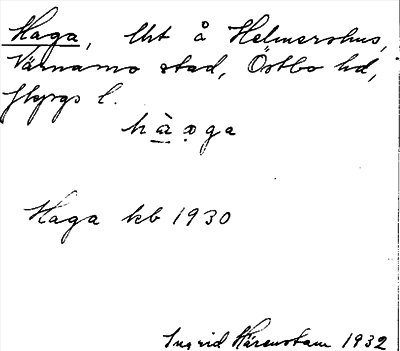 Haga, lht å Helmershus,
Värnamo stad, Östbo hd,
Jkpgs l.
hà̱ọga
Haga kb 1930
Ingrid Härenstam 1932